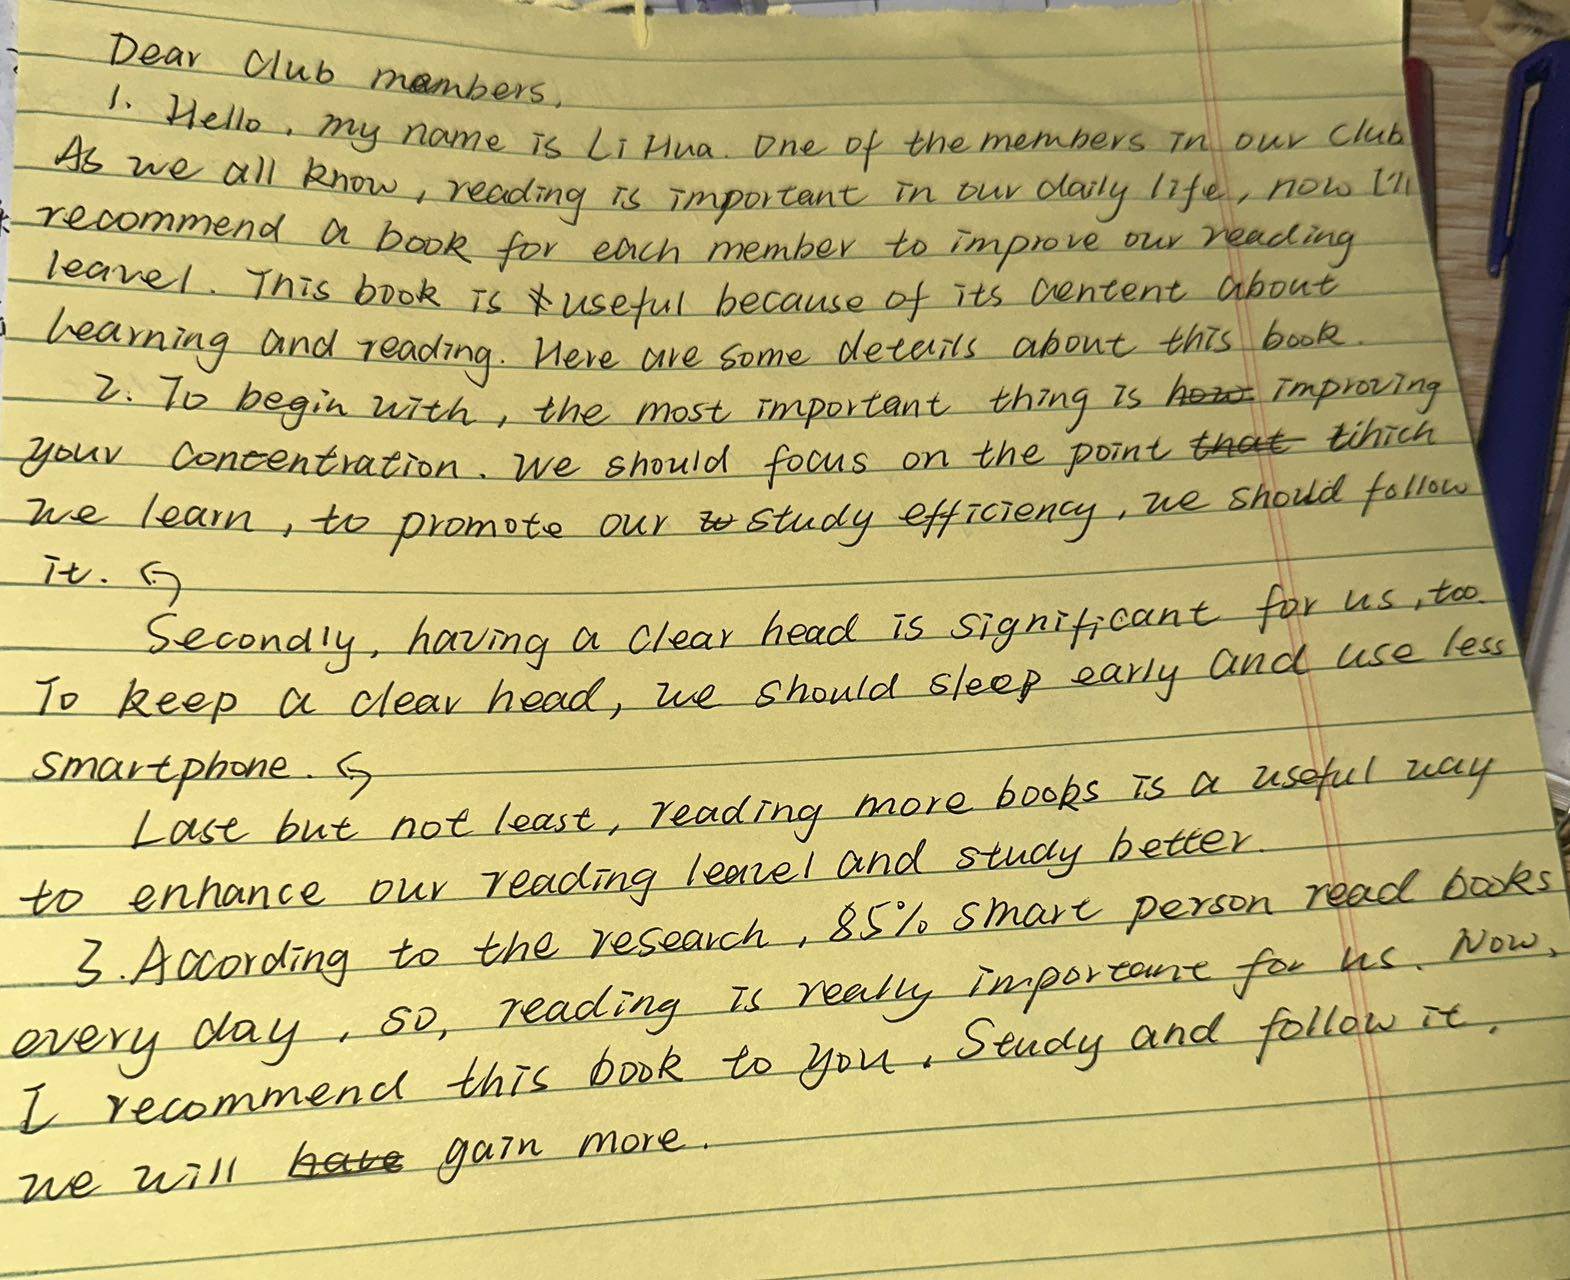 Dear Club members,
1. Hello, my name is Li Hua. One of the members in our Club
As we all know, reading is important in our daily life, now I'll
recommend a book for each member to improve our reading
leavel. This book is useful because of its centent about
Learning and reading. Here are some details about this book.
2. To begin with, the most important thing is how improving
your concentration. We should focus on the point that
we learn, to promote our study efficiency, we should follow
it.
Secondly, having a clear head is significant for us, too.
To keep a clear head, we should sleep early and use less
smartphone.
Last but not least, reading more books is a useful way
to enhance our reading leavel and study better.
3. According to the research, 85% smart person read books
every day, so, reading is really important for us. Now,
I recommend this book to you. Study and follow it.
we will have gain more.